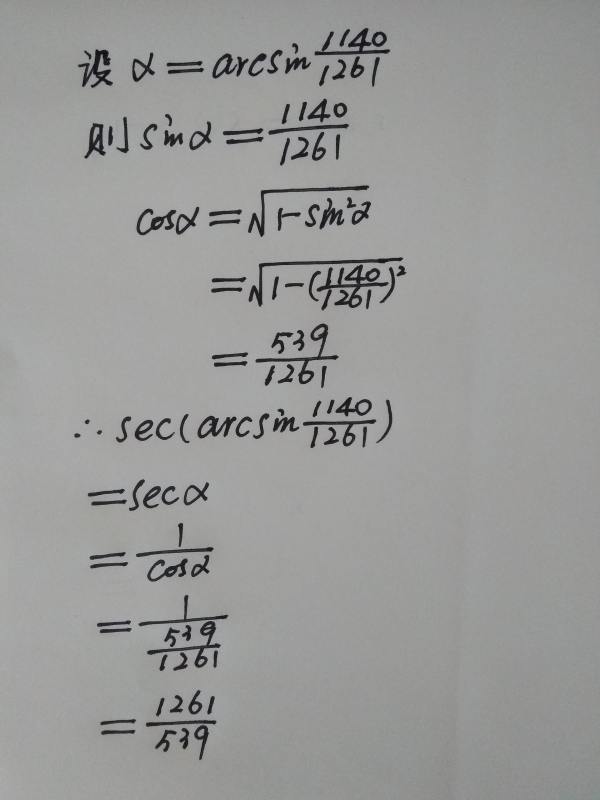 设 α = arcsin 1140/1261
则 sinα = 1140/1261
cosα = √(1-sin²α)
= √(1-(1140/1261)²)
= 539/1261
∴ sec(arcsin 1140/1261)
= secα
= 1/cosα
= 1/(539/1261)
= 1261/539